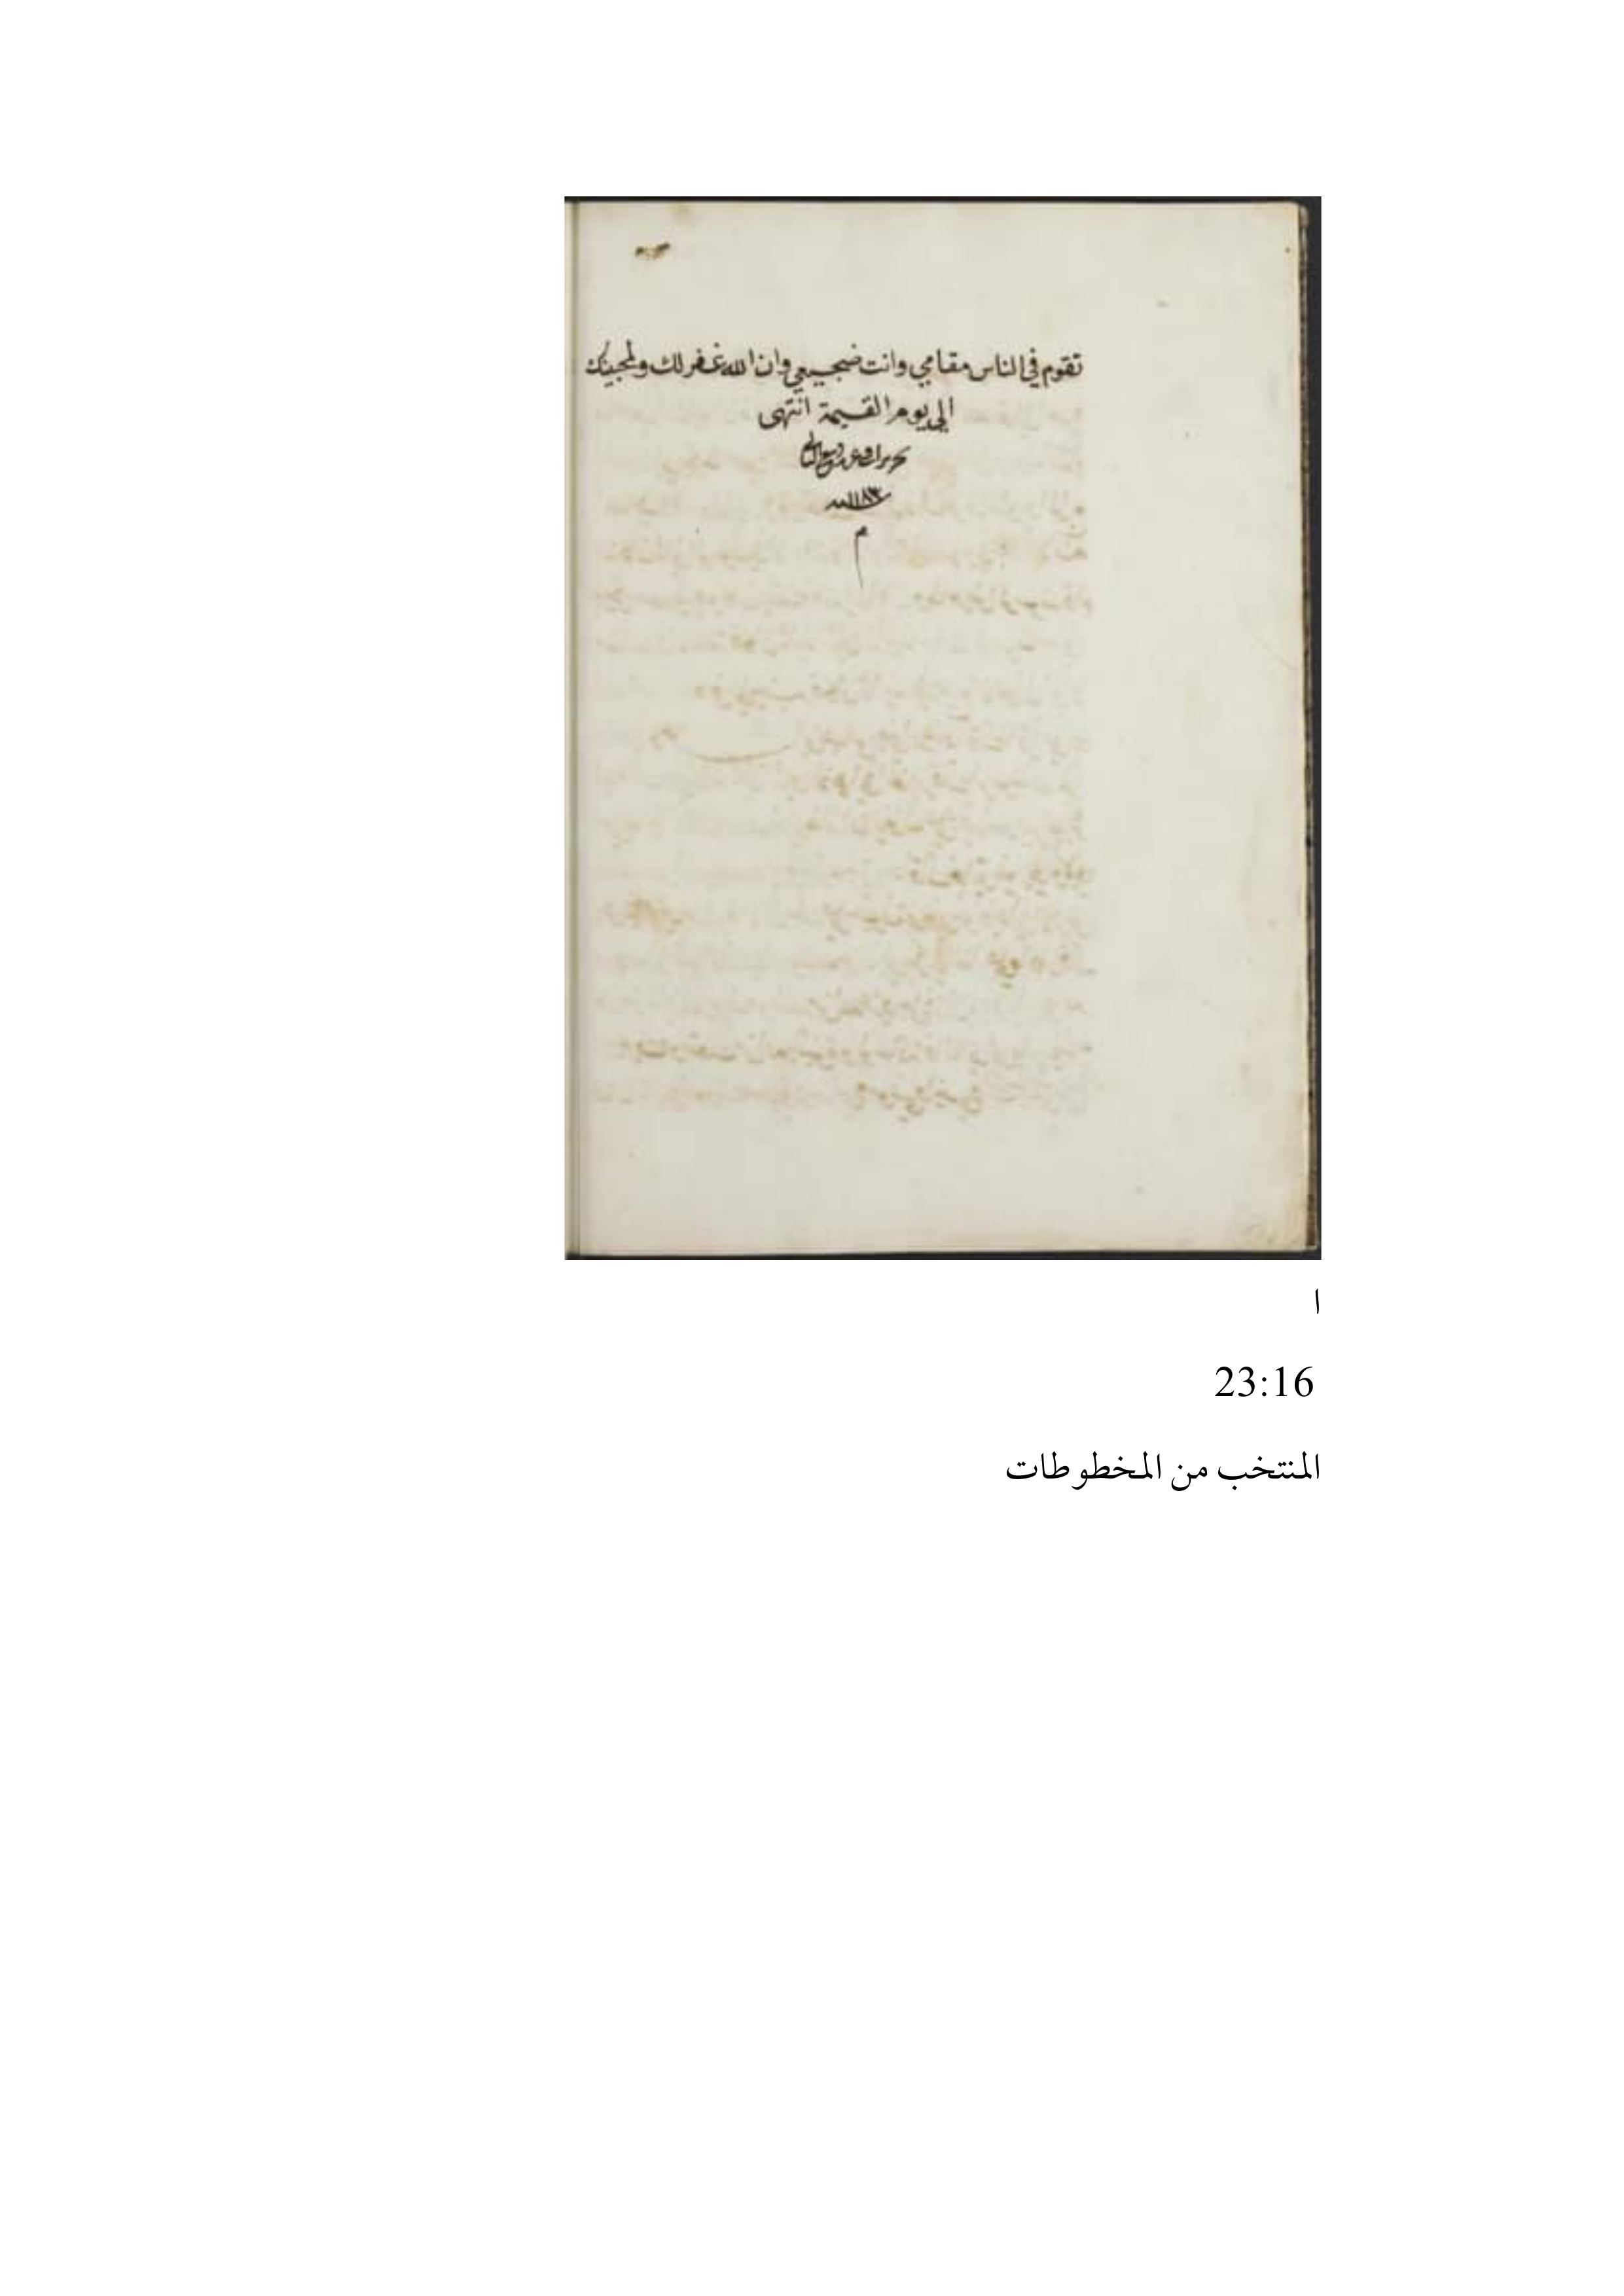 تقوم في الناس مقامي وانت ضجيعي وان الله غفر لك ولمحبيك
الى يوم القيمة انتهى
تحريرا في
سنة ١١٨٣
م
ا
23:16
المنتخب من المخطوطات